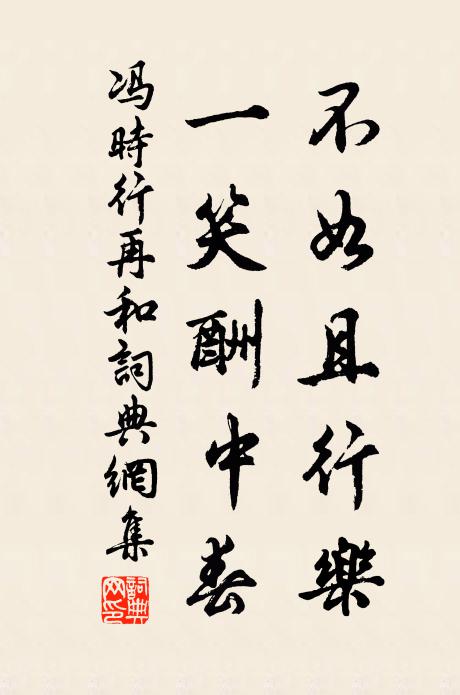 不如且行樂
一笑酬中春
冯時行再和詞典網集
詞典
网印